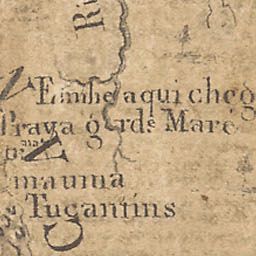 Ri
Emhe aqui cheg
Praya g.rds Maré
mauma
Tucantins